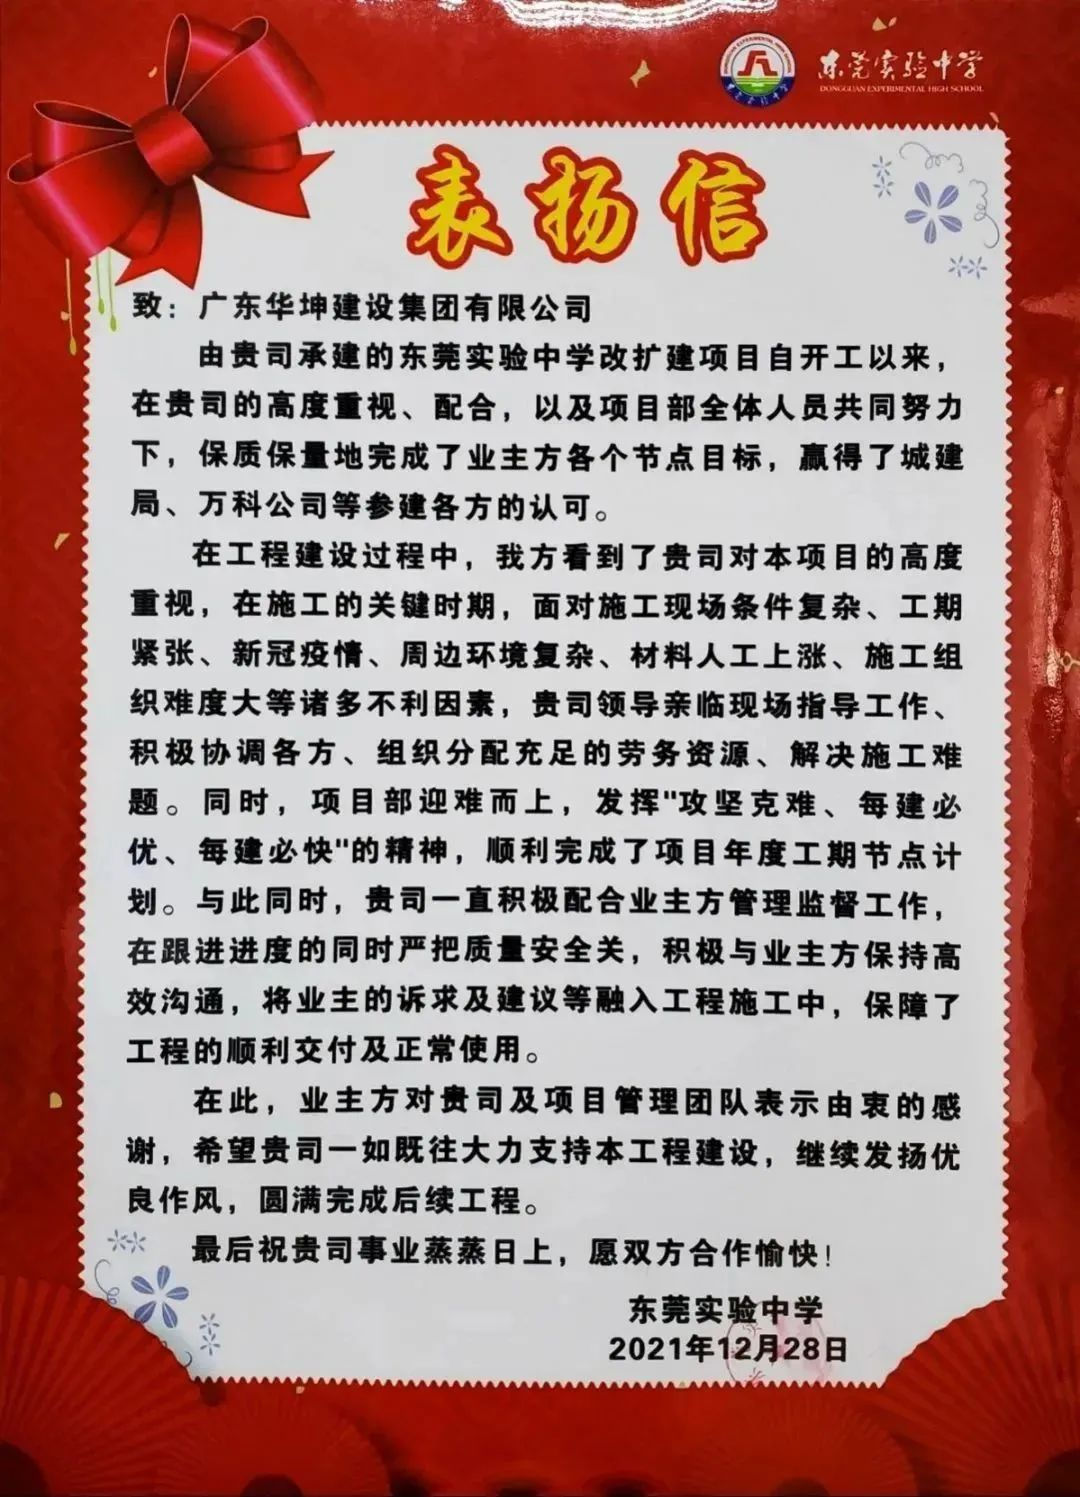 东莞实验中学
DONGGUAN EXPERIMENTAL HIGH SCHOOL
表扬信
致：广东华坤建设集团有限公司
由贵司承建的东莞实验中学改扩建项目自开工以来，
在贵司的高度重视、配合，以及项目部全体人员共同努力
下，保质保量地完成了业主方各个节点目标，赢得了城建
局、万科公司等参建各方的认可。
在工程建设过程中，我方看到了贵司对本项目的高度
重视，在施工的关键时期，面对施工现场条件复杂、工期
紧张、新冠疫情、周边环境复杂、材料人工上涨、施工组
织难度大等诸多不利因素，贵司领导亲临现场指导工作、
积极协调各方、组织分配充足的劳务资源、解决施工难
题。同时，项目部迎难而上，发挥"攻坚克难、每建必
优、每建必快"的精神，顺利完成了项目年度工期节点计
划。与此同时，贵司一直积极配合业主方管理监督工作，
在跟进进度的同时严把质量安全关，积极与业主方保持高
效沟通，将业主的诉求及建议等融入工程施工中，保障了
工程的顺利交付及正常使用。
在此，业主方对贵司及项目管理团队表示由衷的感
谢，希望贵司一如既往大力支持本工程建设，继续发扬优
良作风，圆满完成后续工程。
最后祝贵司事业蒸蒸日上，愿双方合作愉快！
东莞实验中学
2021年12月28日